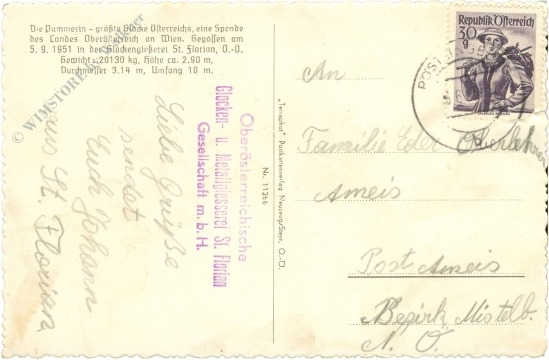 Die Pummerin - größte Glocke Österreichs, eine Spende
des Landes Oberösterreich an Wien. Gegossen am
5. 9. 1951 in der Glockengießerei St. Florian, O.-Ö.
Gewicht: 20130 kg, Höhe ca. 2.90 m,
Durchmesser 3.14 m, Umfang 10 m.
Oberösterreichische
Glocken- u. Metallgiesserei St. Florian
Gesellschaft m. b. H.
Liebe Grüße
sendet
Euch Johann
aus St. Florian
Nr. 11266
Republik Österreich
30 g
POST
An
Familie Eder Oberlehrer
Ameis
Post Ameis
Bezirk Mistelb.
N. Ö.